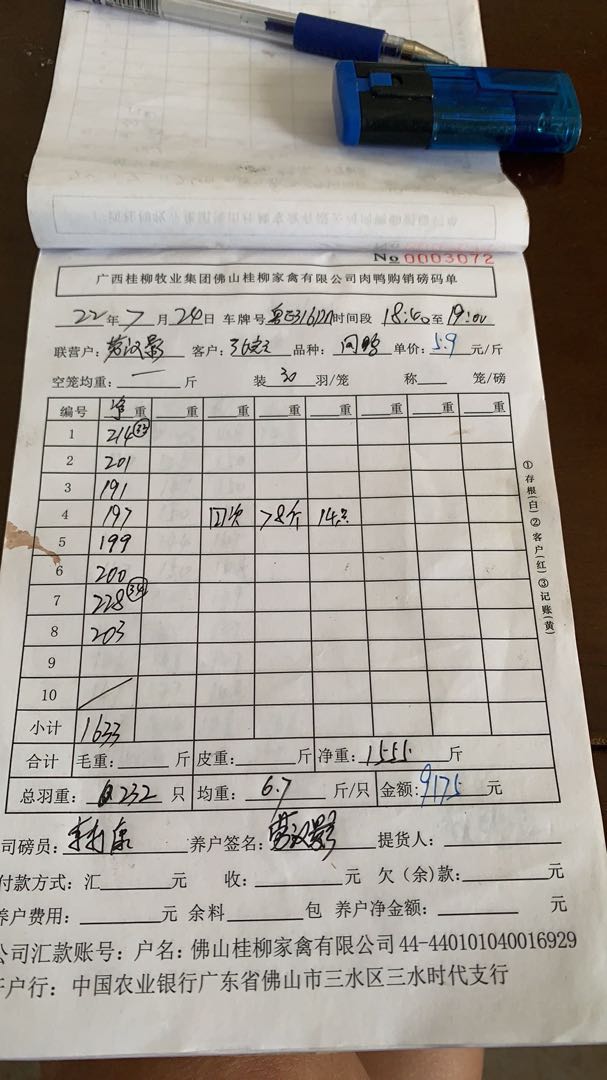 No 0003072
广西桂柳牧业集团佛山桂柳家禽有限公司肉鸭购销磅码单
22年7月24日 车牌号 时间段 18:40至19:00
联营户: 客户: 品种: 单价: 5.9 元/斤
空笼均重: 一 斤 装 30 羽/笼 称 笼/磅
编号 净重 重 重 重 重 重 重 重
1 214 33
2 201
3 191
4 197 回次 78斤 14只
5 199
6 200
7 228 34
8 203
9
10
小计 1633
合计 毛重: 斤 皮重: 斤 净重: 1555. 斤
总羽重: 232 只 均重: 6.7 斤/只 金额: 9175 元
司磅员: 养户签名: 提货人:
付款方式: 汇 元 收: 元 欠(余)款: 元
养户费用: 元 余料 包 养户净金额: 元
公司汇款账号: 户名: 佛山桂柳家禽有限公司 44-440101040016929
开户行: 中国农业银行广东省佛山市三水区三水时代支行
①存根(白)②客户(红)③记账(黄)